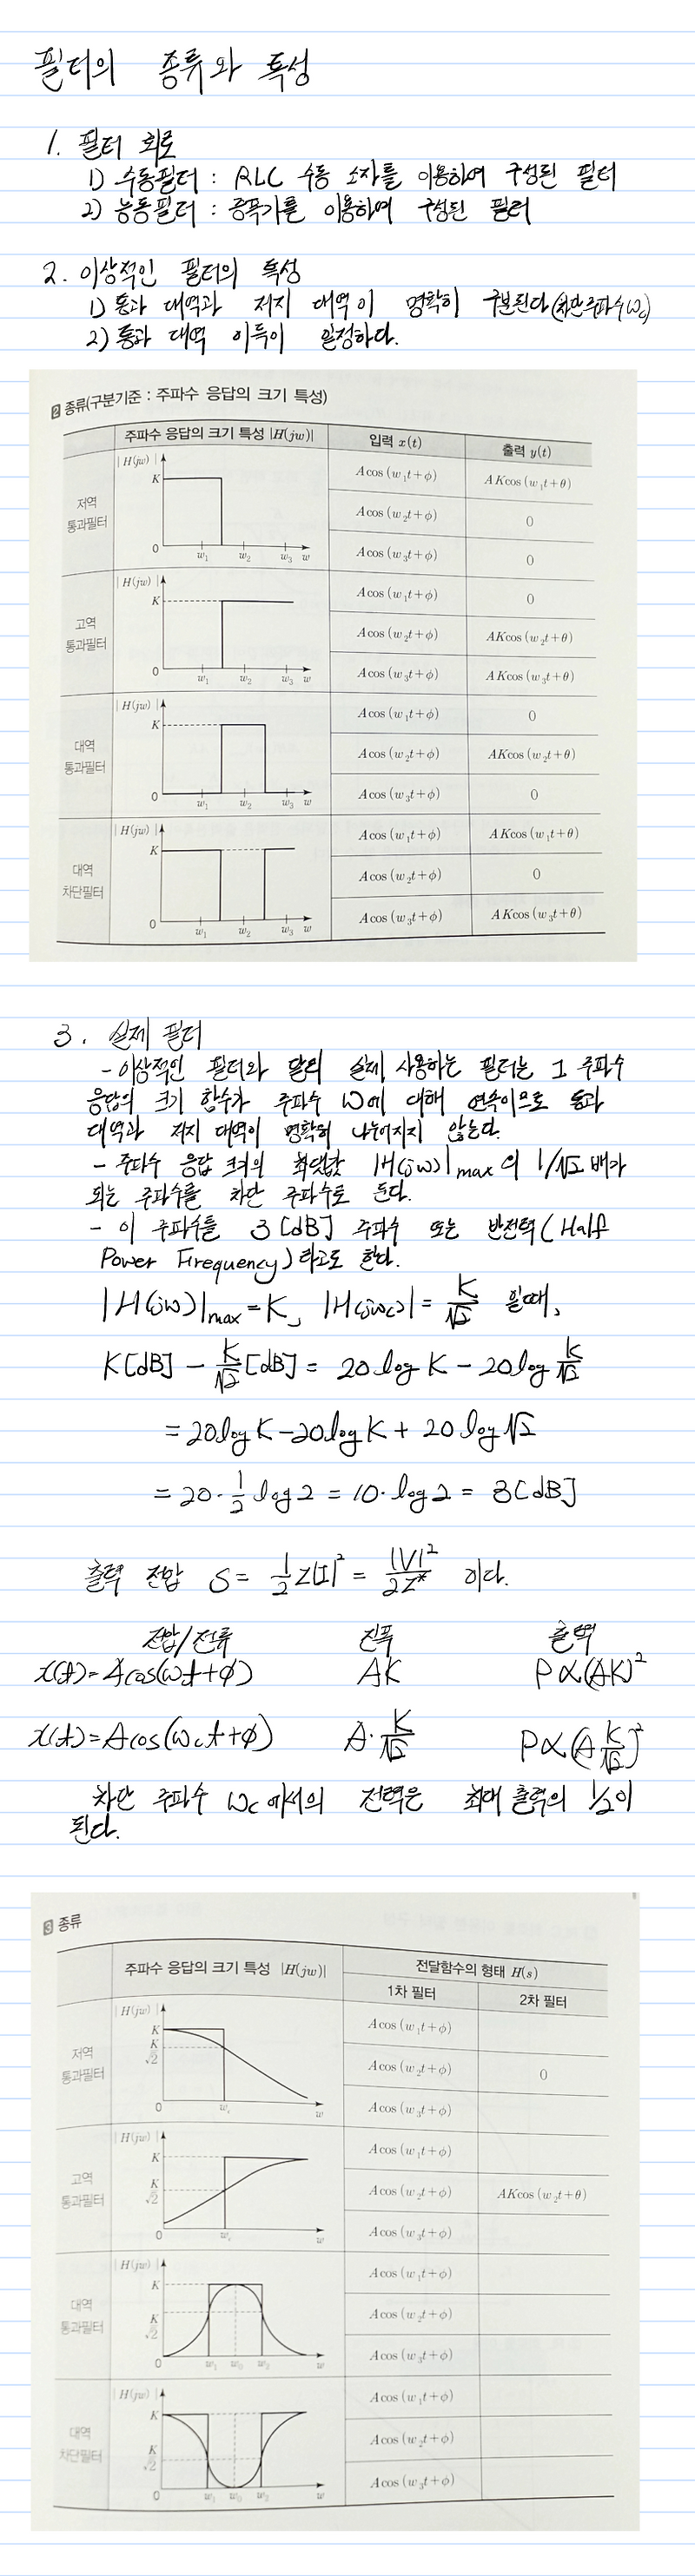 필터의 종류와 특성
1. 필터 회로
1) 수동필터 : RLC 수동 소자를 이용하여 구성된 필터
2) 능동필터 : 증폭기를 이용하여 구성된 필터
2. 이상적인 필터의 특성
1) 통과 대역과 저지 대역이 명확히 구분된다 (차단주파수 ωc)
2) 통과 대역 이득이 일정하다.
2 종류(구분기준 : 주파수 응답의 크기 특성)
주파수 응답의 크기 특성 |H(jw)| 입력 x(t) 출력 y(t)
저역
통과필터
|H(jw)|
K
0 w₁ w₂ w₃ w
A cos (w₁t+φ) AK cos (w₁t+θ)
A cos (w₂t+φ) 0
A cos (w₃t+φ) 0
고역
통과필터
|H(jw)|
K
0 w₁ w₂ w₃ w
A cos (w₁t+φ) 0
A cos (w₂t+φ) AK cos (w₂t+θ)
A cos (w₃t+φ) AK cos (w₃t+θ)
대역
통과필터
|H(jw)|
K
0 w₁ w₂ w₃ w
A cos (w₁t+φ) 0
A cos (w₂t+φ) AK cos (w₂t+θ)
A cos (w₃t+φ) 0
대역
차단필터
|H(jw)|
K
0 w₁ w₂ w₃ w
A cos (w₁t+φ) AK cos (w₁t+θ)
A cos (w₂t+φ) 0
A cos (w₃t+φ) AK cos (w₃t+θ)
3. 실제 필터
- 이상적인 필터와 달리 실제 사용하는 필터는 그 주파수
응답의 크기 함수가 주파수 ω에 대해 연속이므로 통과
대역과 저지 대역이 명확히 나누어지지 않는다.
- 주파수 응답 크기의 최댓값 |H(jω)|max의 1/√2 배가
되는 주파수를 차단 주파수로 둔다.
- 이 주파수를 3[dB] 주파수 또는 반전력(Half
Power Frequency)라고도 한다.
|H(jω)|max = K, |H(jωc)| = K/√2 일때,
K[dB] - K/√2 [dB] = 20 log K - 20 log K/√2
= 20 log K - 20 log K + 20 log √2
= 20 · 1/2 log 2 = 10 · log 2 = 3[dB]
출력 전압 S = 1/2 Z|I|² = |V|²/2Z* 이다.
전압/전류 진폭 출력
x(t) = A cos(ωt+φ) AK P∝(AK)²
x(t) = A cos(ωct+φ) A·K/√2 P∝(A K/√2)²
차단 주파수 ωc에서의 전력은 최대 출력의 1/2이
된다.
3 종류
주파수 응답의 크기 특성 |H(jw)| 전달함수의 형태 H(s)
1차 필터 2차 필터
저역
통과필터
|H(jw)|
K
K/√2
0 w꜀ w
A cos (w₁t+φ)
A cos (w₂t+φ) 0
A cos (w₃t+φ)
고역
통과필터
|H(jw)|
K
K/√2
0 w꜀ w
A cos (w₁t+φ)
A cos (w₂t+φ) AK cos (w₂t+θ)
A cos (w₃t+φ)
대역
통과필터
|H(jw)|
K
K/√2
0 w₁ w₀ w₂ w
A cos (w₁t+φ)
A cos (w₂t+φ)
A cos (w₃t+φ)
대역
차단필터
|H(jw)|
K
K/√2
0 w₁ w₀ w₂ w
A cos (w₁t+φ)
A cos (w₂t+φ)
A cos (w₃t+φ)